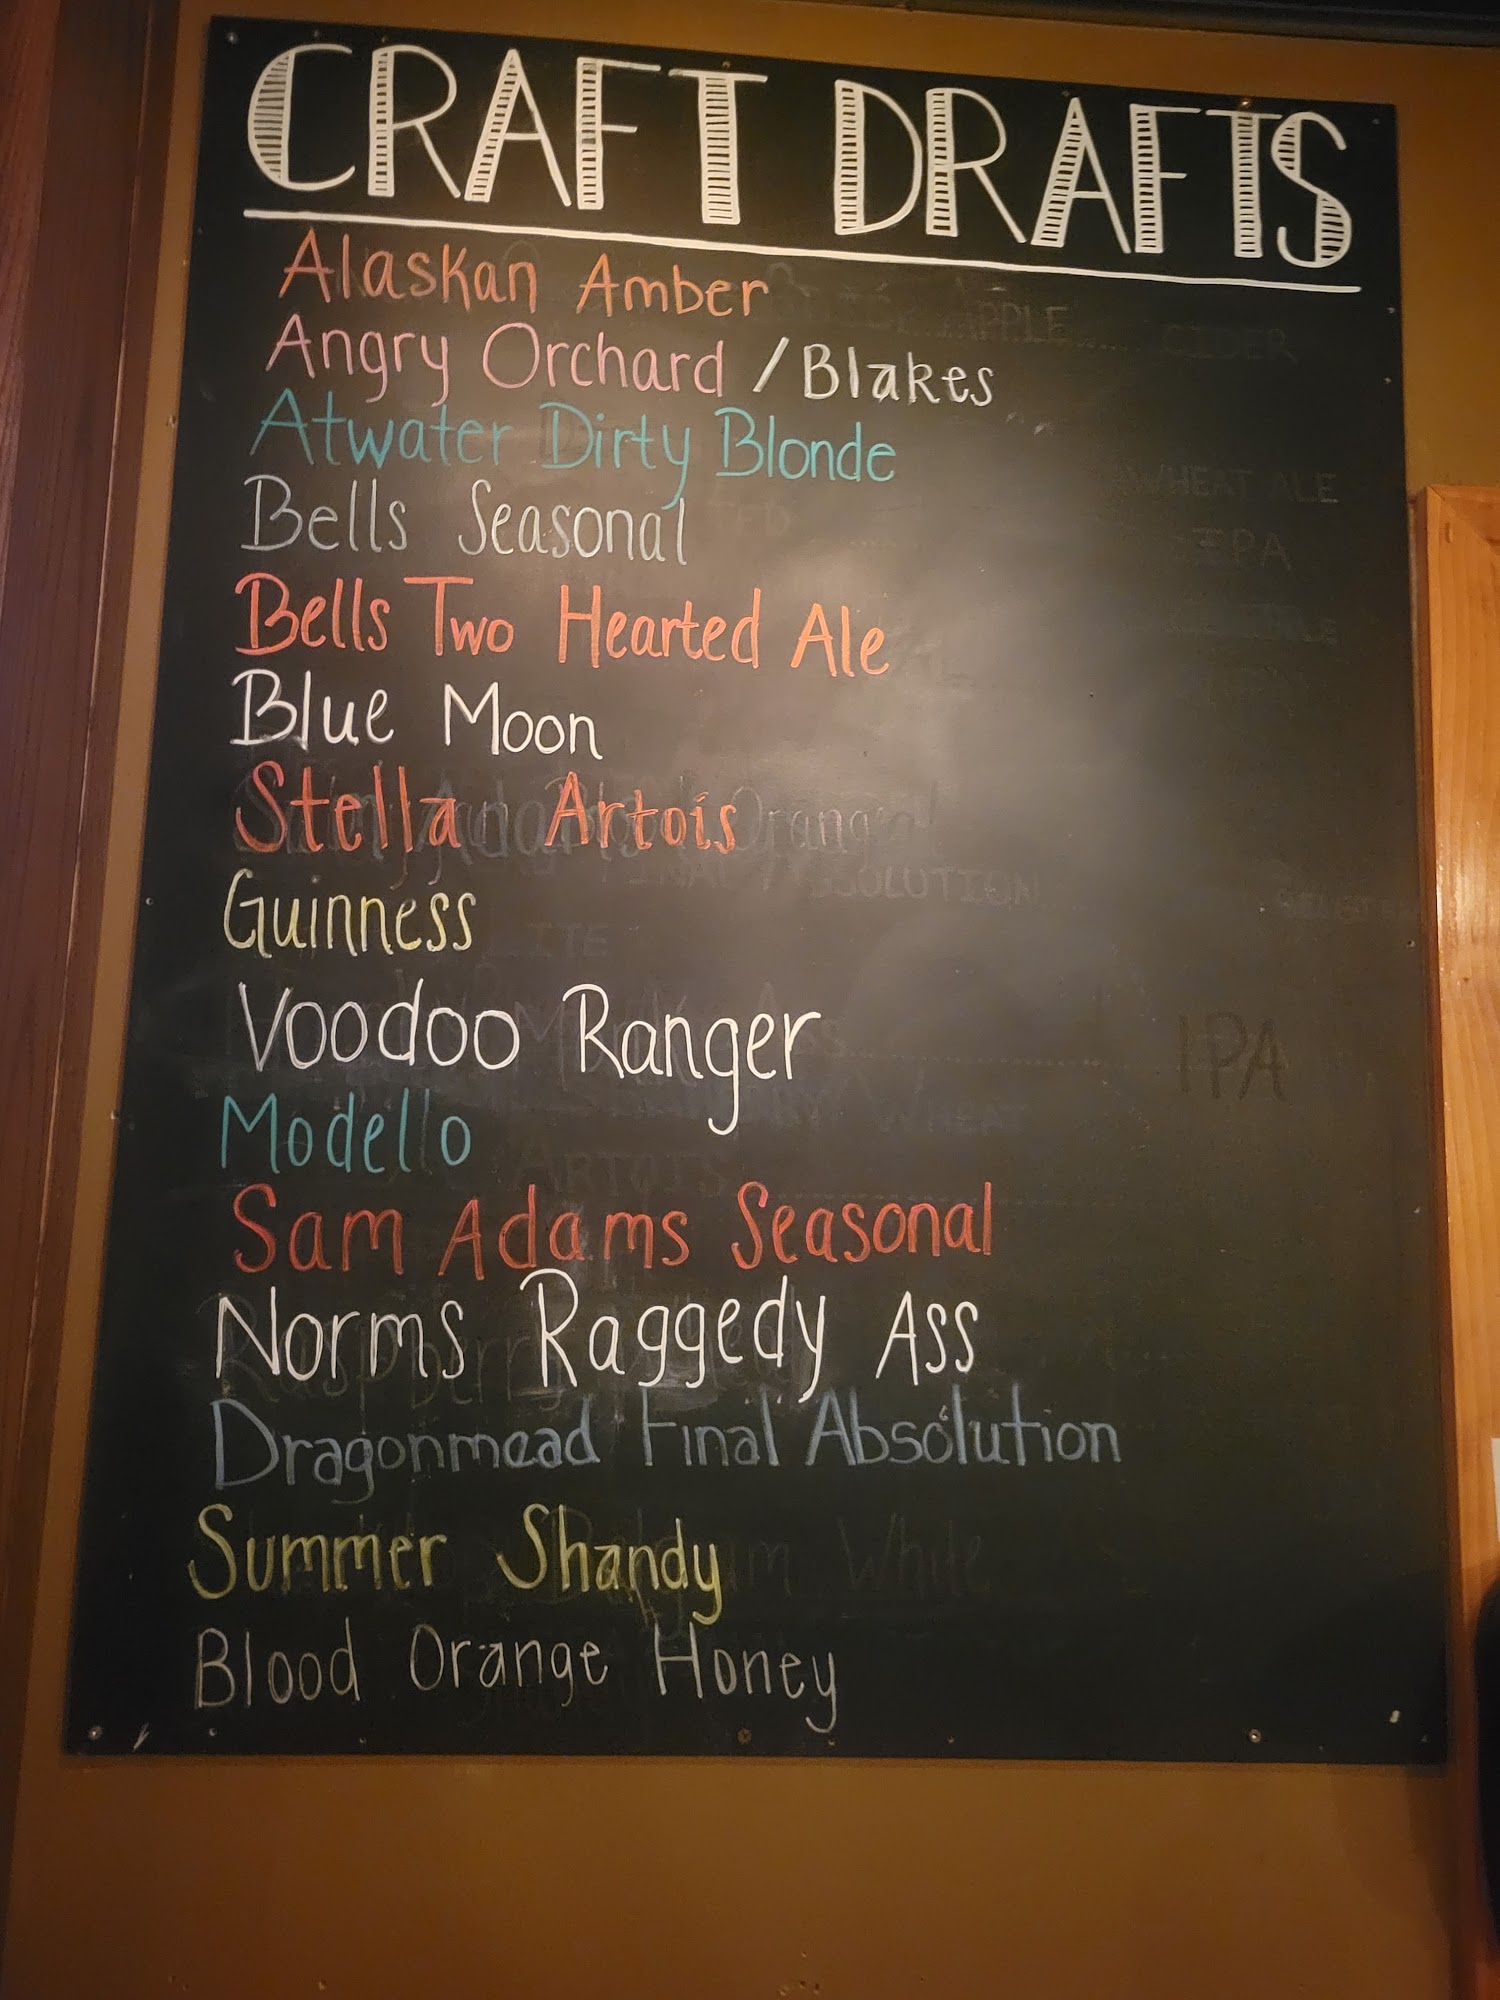 CRAFT DRAFTS
Alaskan Amber
Angry Orchard / Blakes
Atwater Dirty Blonde
Bells Seasonal
Bells Two Hearted Ale
Blue Moon
Stella Artois
Guinness
Voodoo Ranger
Modello
Sam Adams Seasonal
Norms Raggedy Ass
Dragonmead Final Absolution
Summer Shandy
Blood Orange Honey